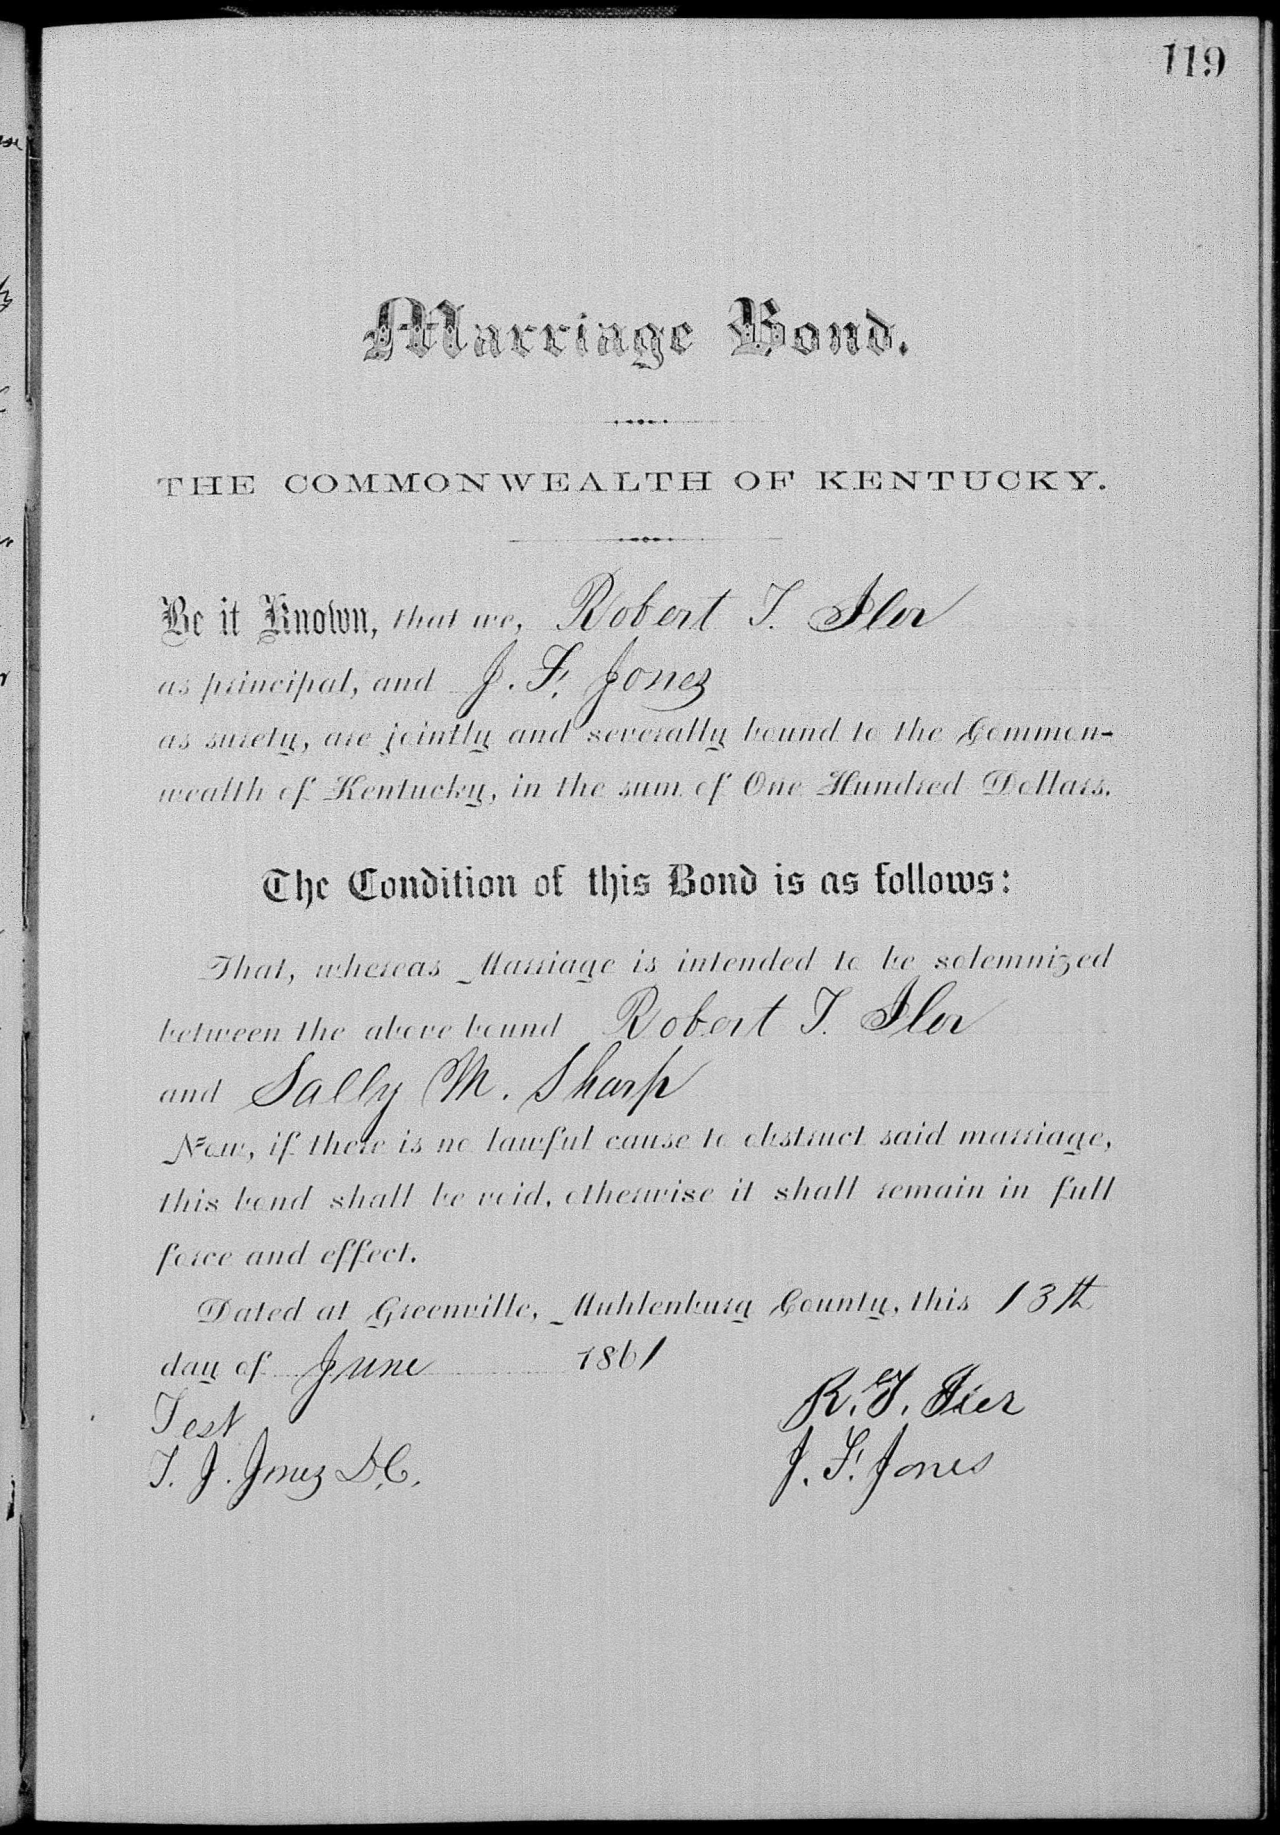 119
Marriage Bond.
THE COMMONWEALTH OF KENTUCKY.
Be it Known, that we, Robert T. Iler
as principal, and J. F. Jones
as surety, are jointly and severally bound to the Common-
wealth of Kentucky, in the sum of One Hundred Dollars.
The Condition of this Bond is as follows:
That, whereas Marriage is intended to be solemnized
between the above bound Robert T. Iler
and Sally M. Sharp
Now, if there is no lawful cause to obstruct said marriage,
this bond shall be void, otherwise it shall remain in full
force and effect.
Dated at Greenville, Muhlenburg County, this 13th
day of June 1861
Test
R. T. Iler
T. J. Jones D.C.
J. F. Jones